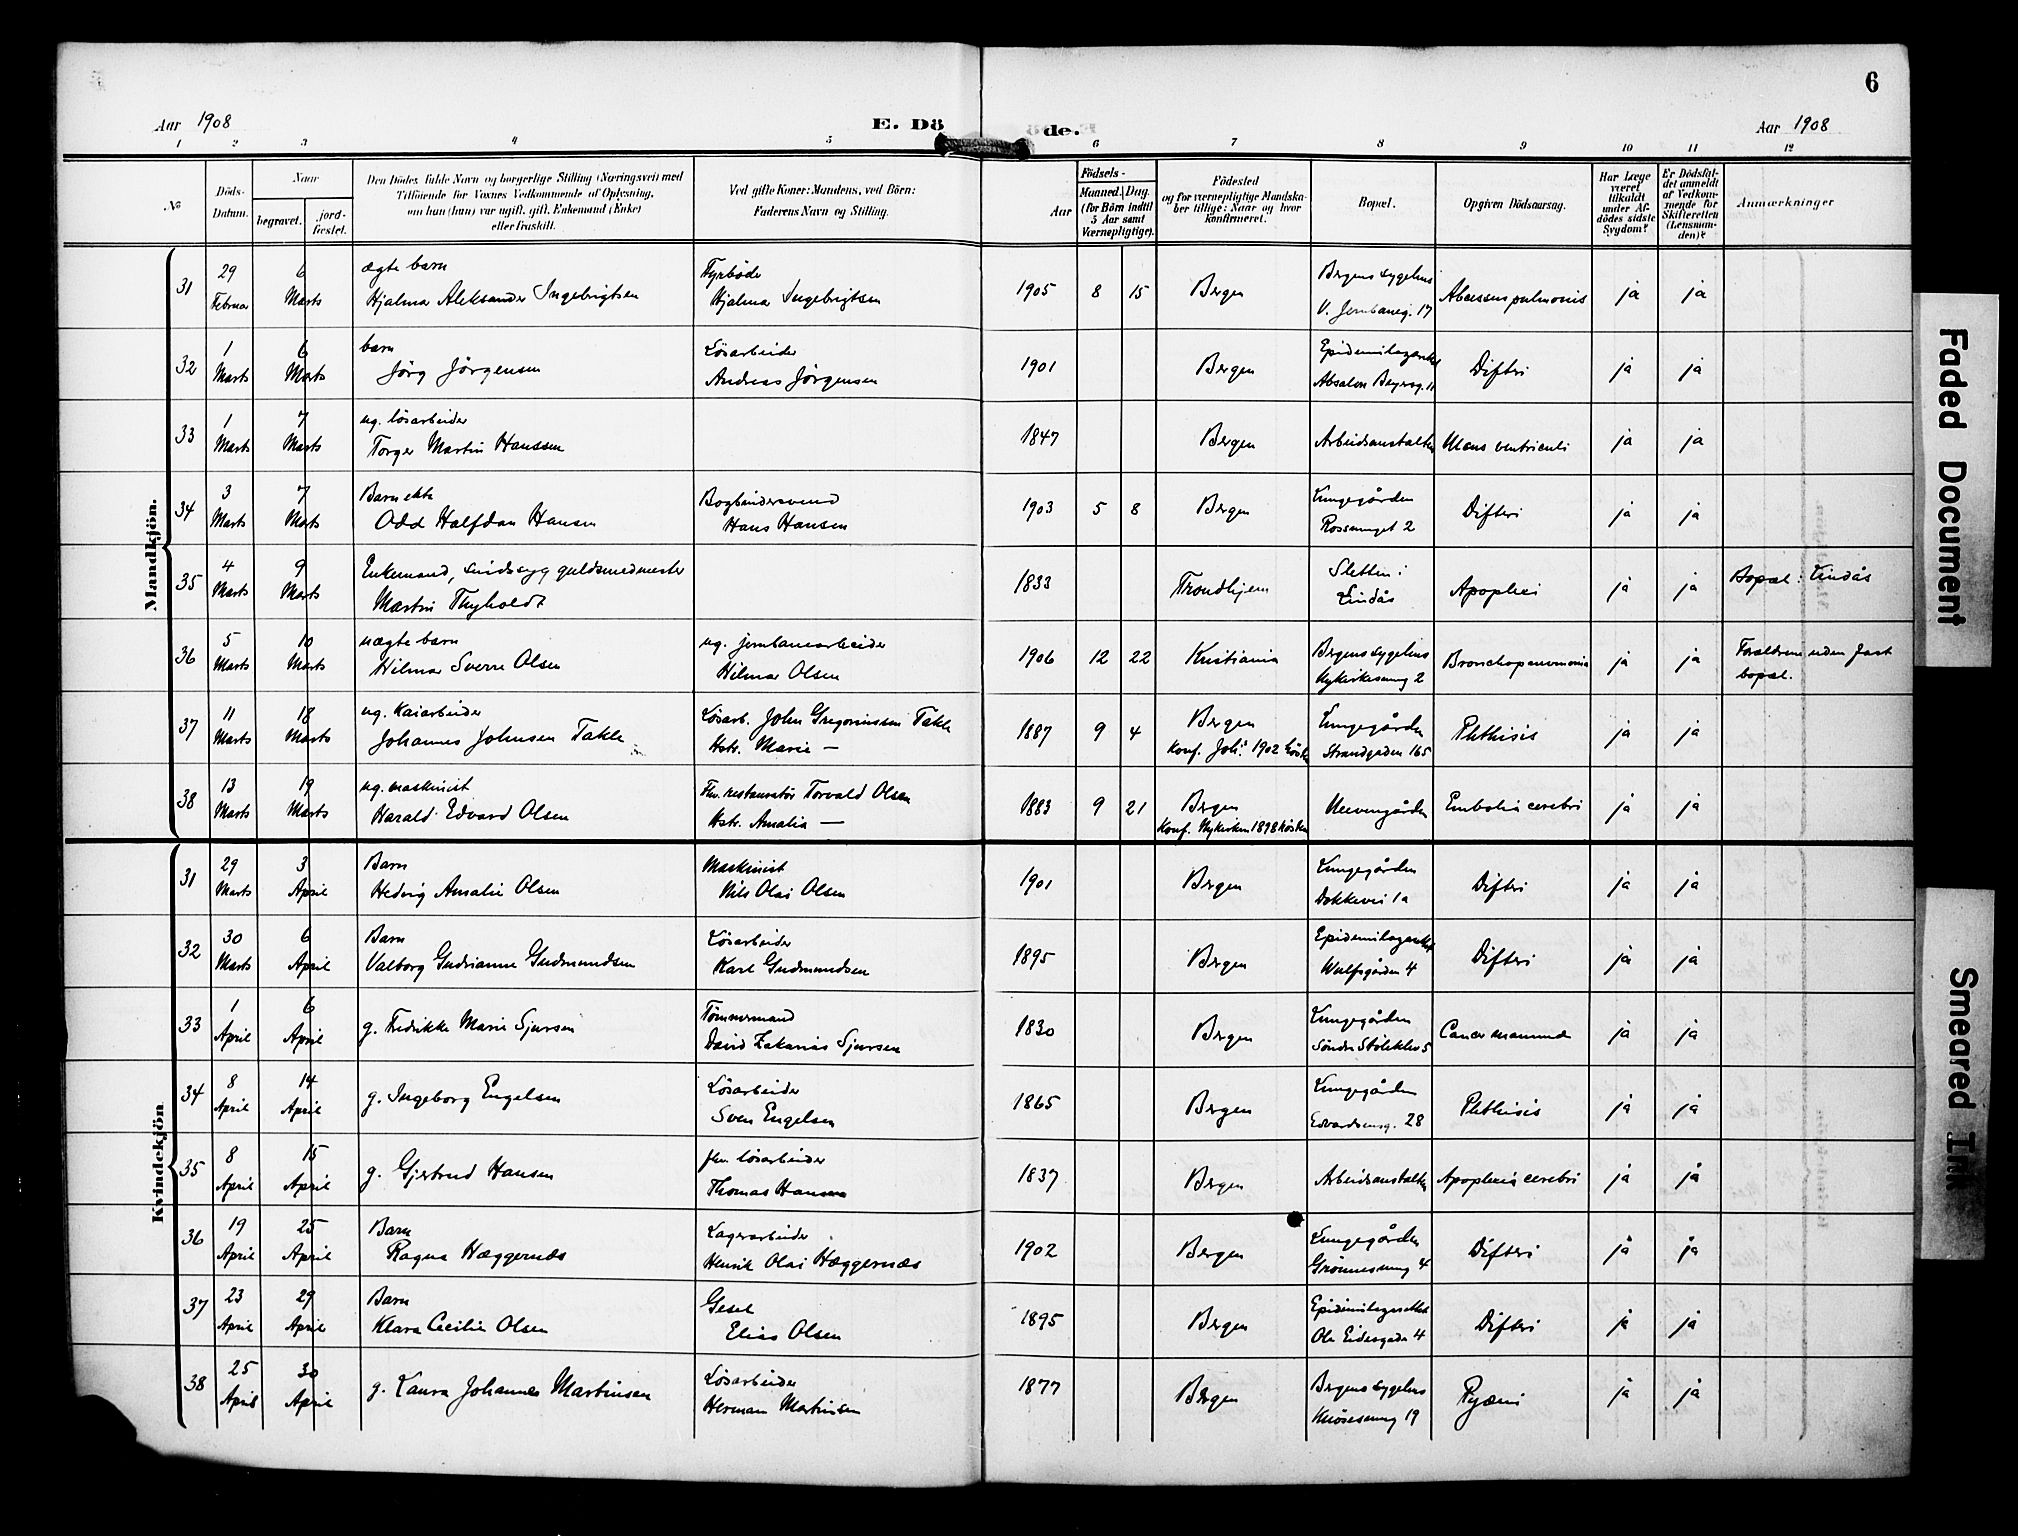 6
Aar 1908
E. Dö
de.
Aar 1908
1 2 3 4 5 6 7 8 9 10 11 12
№
Döds-
Datum.
Naar
begravet.
jord-
fæstet.
Den Dödes fulde Navn og borgerlige Stilling (Næringsvei) med
Tilföiende for Voxnes Vedkommende af Oplysning,
om han (hun) var ugift, gift, Enkemand (Enke)
eller fraskilt.
Ved gifte Koner: Mandens, ved Börn:
Faderens Navn og Stilling.
Födsels-
Aar
Maaned.
Dag.
(for Börn indtil
5 Aar samt
Værnepligtige).
Födested
og for værnepligtige Mandska-
ber tillige: Naar og hvor
konfirmeret.
Bopæl.
Opgiven Dödsaarsag.
Har Læge
været
tilkaldt
under Af-
dödes sidste
Sygdom?
Er Dödsfal-
det anmeldt
af Vedkom-
mende for
Skifteretten
(Lensman-
den)?
Anmærkninger
Mandkjön.
31 29 Februar 6 Marts ægte barn Hjalmar Aleksander Ingebrigtsen Fyrbøder Hjalmar Ingebrigtsen 1905 8 15 Bergen Bergens sygehus V. Jernbaneg. 17 Abcessus pulmonis ja ja
32 1 Marts 6 Marts barn Jörg Jörgensen Løsarbeider Andreas Jørgensen 1901 Bergen Epidemilazarettet Absalon Beyersg. 11 Difteri ja ja
33 1 Marts 7 Marts ug. løsarbeider Torger Martin Hanssen 1847 Bergen Arbeidsanstalten Ulcus ventriculi ja ja
34 3 Marts 7 Marts Barn ekte Odd Halfdan Hansen Bogbindersvend Hans Hansen 1903 5 8 Bergen Lungegården 2 Difteri ja ja
35 4 Marts 9 Marts Enkemand, sindssyg guldsmedmester Martin Thyholdt 1833 Trondhjem Sletten i Lindås Apoplexi ja ja Bopæl: Lindås
36 5 Marts 10 Marts uægte barn Hilmar Sverre Olsen ug. jernbanearbeider Hilmar Olsen 1906 12 22 Kristiania Bergens sygehus Nykirkesmug 2 Bronchopneumonia ja ja Forældrene uden fast bopæl.
37 11 Marts 18 Marts ug. Kaiarbeider Johannes Johnsen Takle Løsarb. John Gregoriussen Takle Hstr. Marie — 1887 9 4 Bergen Konf. Joh. 1902 høsten Lungegården Strandgaden 165 Phthisis ja ja
38 13 Marts 19 Marts ug. maskinist Harald Edvard Olsen Fhv. restauratør Torvald Olsen Hstr. Amalia — 1883 9 21 Bergen Konf. Nykirken 1898 høsten Neevengården Embolia cerebri ja ja
Kvindekjön
31 29 Marts 3 April Barn Hedvig Amalie Olsen Maskinist Nils Olai Olsen 1901 Bergen Lungegården Dokkevei 1a Difteri ja ja
32 30 Marts 6 April Barn Valborg Gudrianne Gudmundsen Løsarbeider Karl Gudmundsen 1895 Bergen Epidemilazarettet Wulfsgården 4 Difteri ja ja
33 1 April 6 April g. Fredrikke Marie Sjursen Tømmermand David Zakarias Sjursen 1830 Bergen Lungegården Søndre Stølekleiv 5 Cancer mammae ja ja
34 8 April 14 April g. Ingeborg Engelsen Løsarbeider Sven Engelsen 1865 Bergen Lungegården Edvardsensg. 28 Phthisis ja ja
35 8 April 15 April g. Gjertrud Hansen fhv. løsarbeider Thomas Hansen 1837 Bergen Arbeidsanstalten Apoplexia cerebri ja ja
36 19 April 25 April Barn Ragna Hæggernæs Lagerarbeider Henrik Olai Hæggernæs 1902 Bergen Lungegården Grønnesmug 4 Difteri ja ja
37 23 April 29 April Barn Klara Cecilie Olsen Gesel Elias Olsen 1895 Bergen Epidemilazarettet Ole Eidesgade 4 Difteri ja ja
38 25 April 30 April g. Laura Johannes Martinsen Løsarbeider Herman Martinsen 1877 Bergen Bergens sygehus Knøsesmug 19 Pyæmi ja ja
Faded Document
Smeared Ink